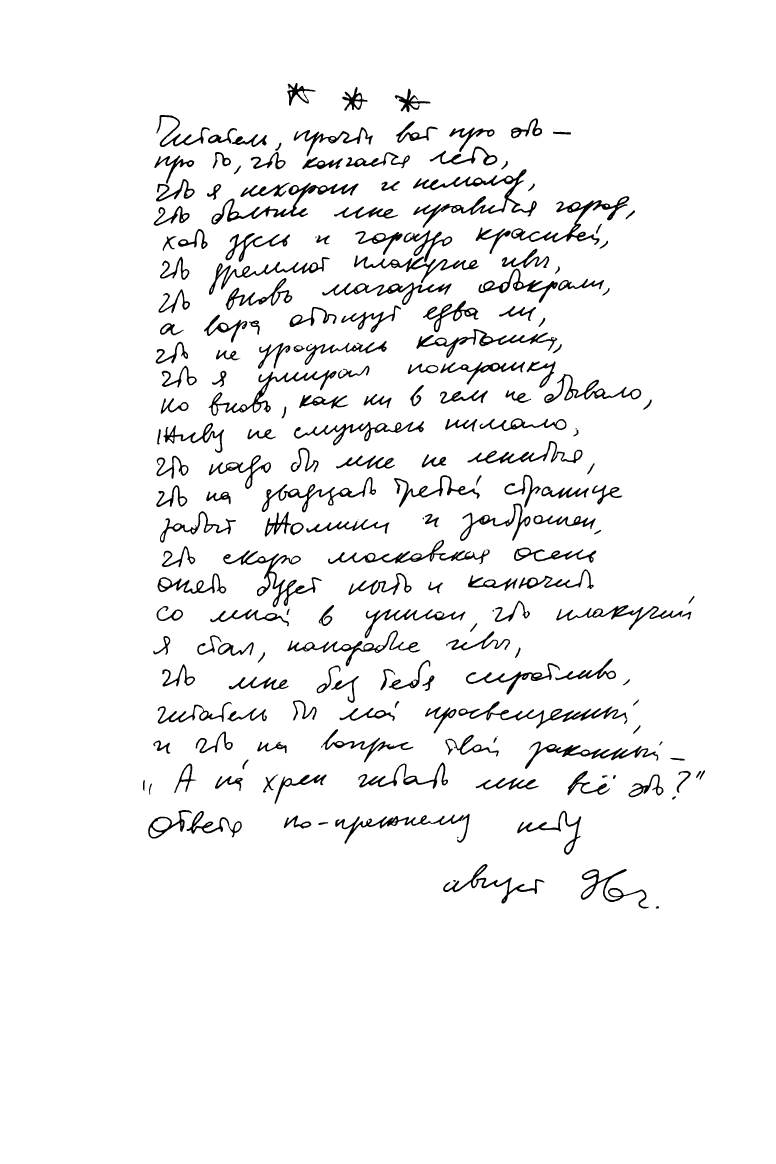 * * *
Читатель, прочти вот про это —
про то, что кончается лето,
что я нехорош и немолод,
что больше мне нравится город,
хоть здесь и гораздо красивей,
что дремлют плакучие ивы,
что вновь магазин обокрали,
а вора отыщут едва ли,
что не уродилась картошка,
что я умирал понарошку
но вновь, как ни в чем не бывало,
живу не смущаясь нимало,
что надо бы мне не лениться,
что на двадцать третьей странице
забыт Жомини и заброшен,
что скоро московская осень
опять будет ныть и канючить
со мной в унисон, что плакучий
я стал, наподобие ивы,
что мне без тебя сиротливо,
читатель ты мой просвещенный,
и что на вопрос твой законный –
"А на́ хрен читать мне всё это?"
Ответа по-прежнему нету
август 96 г.